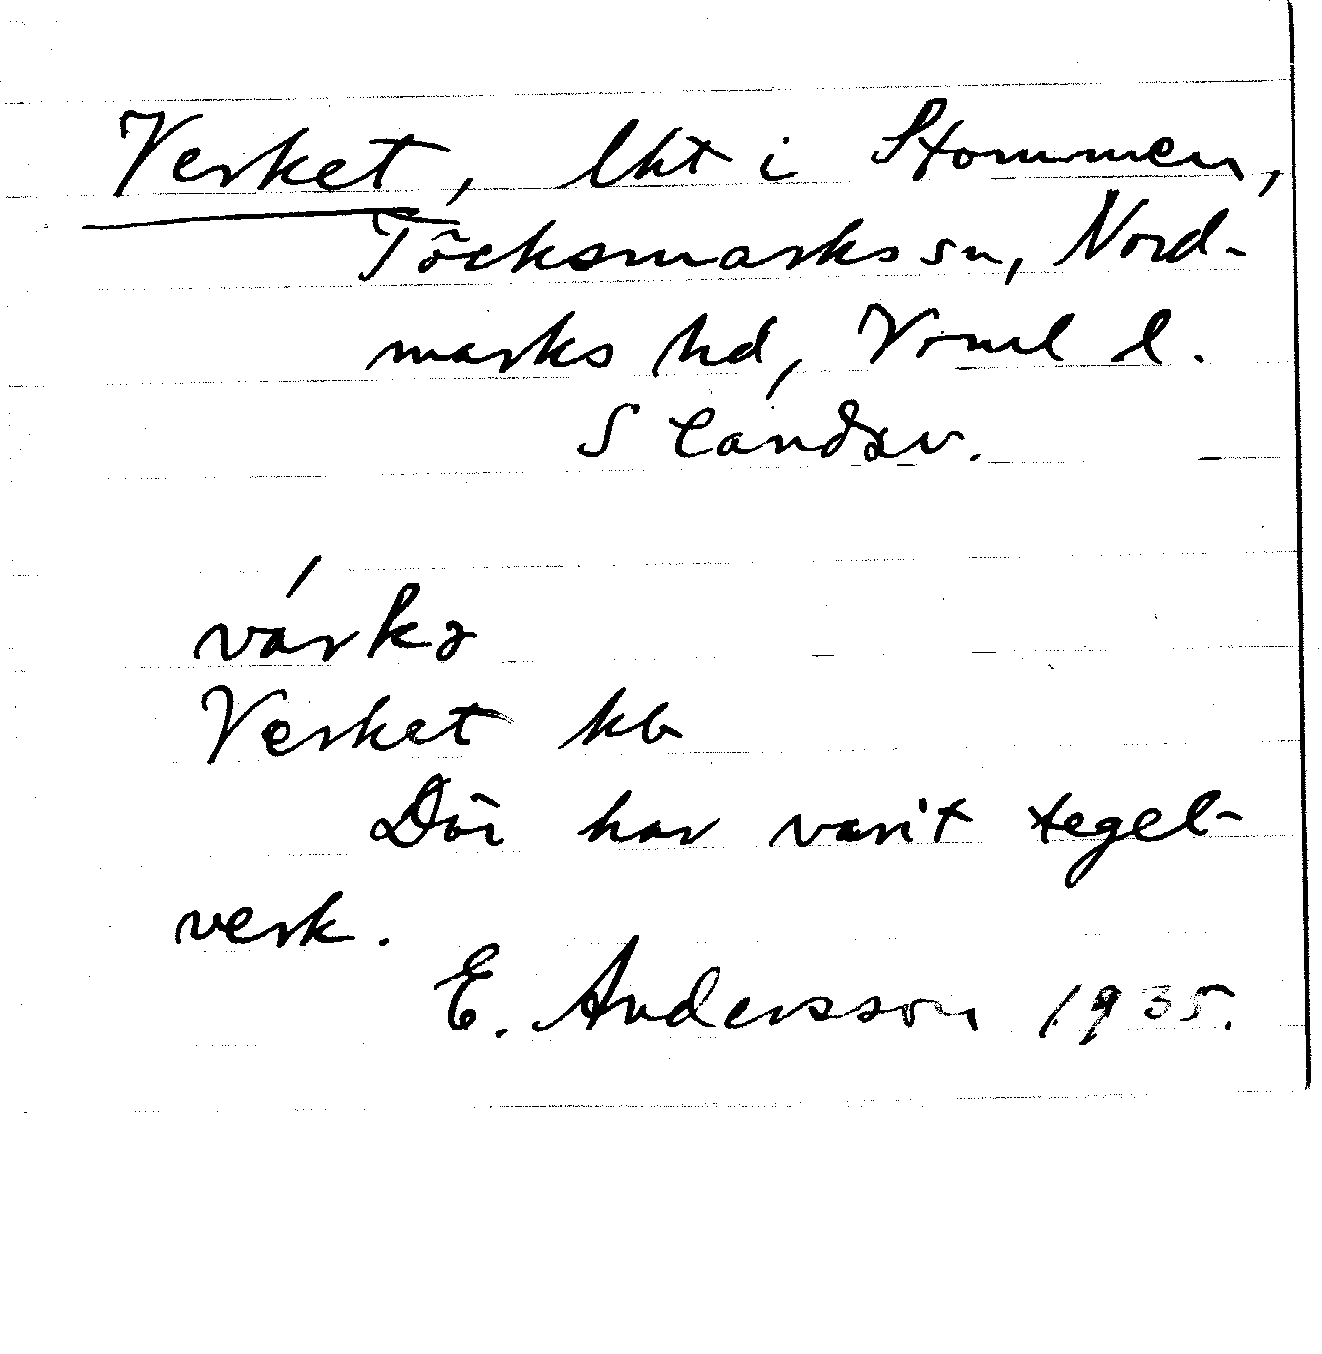 Verket, lht i Stommen,
Töcksmarks sn, Nord-
marks hd, Vrml l.
S Landsv.
Verket kb
Där har varit tegel-
verk.
E. Andersson 1935.